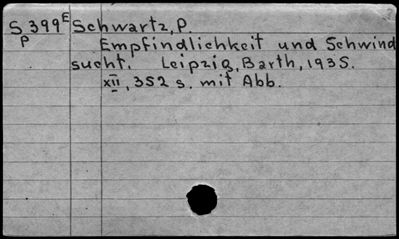 S399E Schwartz, P.
P Empfindlichkeit und Schwind
sucht. Leipzig, Barth, 1935.
XII, 352 s. mit Abb.